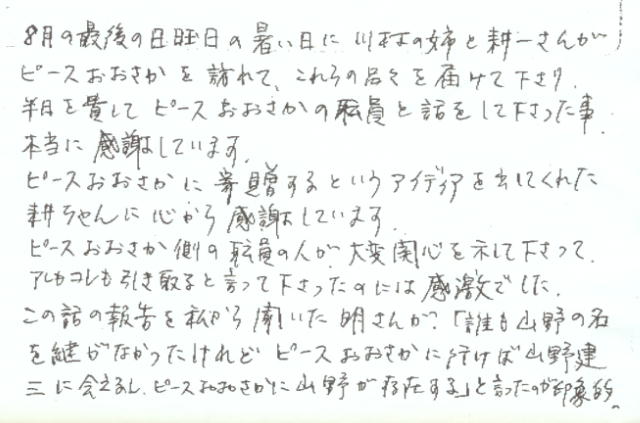 8月の最後の日曜日の暑い日に川村の姉と耕一さんが
ピースおおさかを訪れて、これらの品々を届けて下さり、
半日を費してピースおおさかの職員と話をして下さった事
本当に感謝しています。
ピースおおさかに寄贈するというアイディアを出してくれた
耕ちゃんに心から感謝しています。
ピースおおさか側の職員の人が大変関心を示して下さって、
アレもコレも引き取ると言って下さったのには感激でした。
この話の報告を私から聞いた明さんが、「誰も山野の名
を継がなかったけれどピースおおさかに行けば山野建
三に会えるし、ピースおおさかに山野が存在する」と言ったのが印象的。